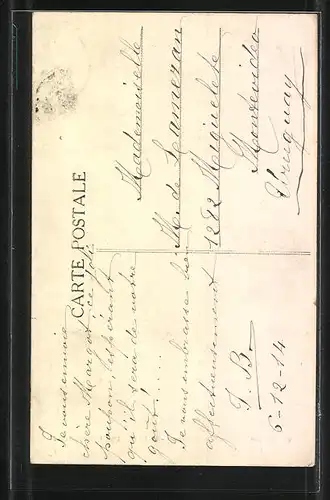 CARTE POSTALE
Je vous envoie
chère Margot ce joli
poupon, espérant
qu'il sera de votre
goût!....
Je vous embrasse bien
affectueusement
T. B.
6-12-14
Mademoiselle
M. de
1292 Miguelete
Montevideo
Uruguay